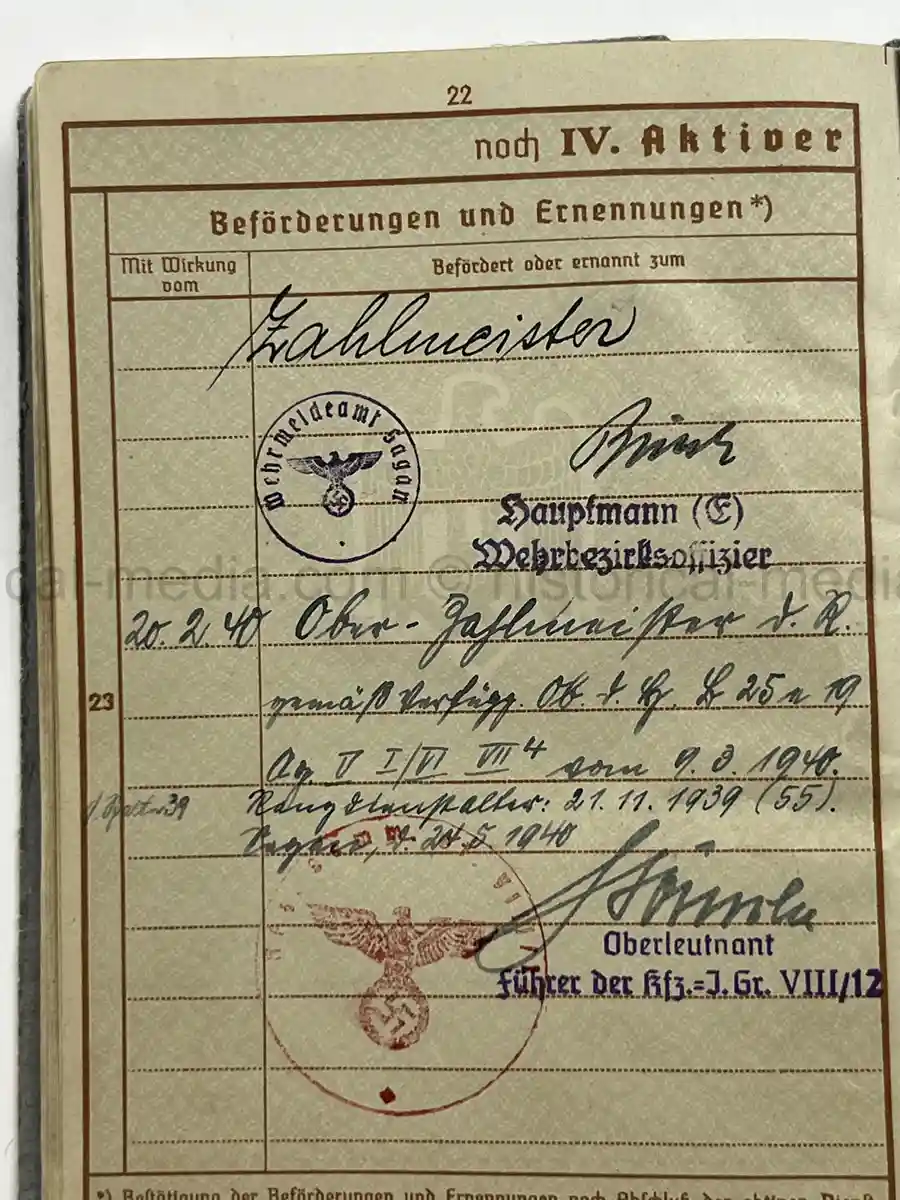 22
noch IV. Aktiver
Beförderungen und Ernennungen*)
Mit Wirkung vom
Befördert oder ernannt zum
Zahlmeister
Wehrmeldeamt Sagan
Hauptmann (E)
Wehrbezirksoffizier
dal-media.com © historical-media
20. 2. 40 Ober-Zahlmeister d. R.
23
gemäß Verfügg. Ob. d. H. 25 19
Ag. V I/VI VII 4 vom 9. 3. 1940.
Rangdienstalter: 21. 11. 1939 (55).
Sagan, d. 24. 5 1940
Oberleutnant
Führer der Kfz.=J. Gr. VIII/12
*) Bestätigung der Beförderungen und Ernennungen nach Abschluß des aktiven